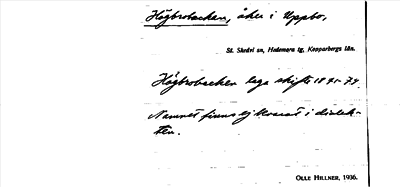 Högbrobacken, åker i Uppbo,
St. Skedvi sn, Hedemora tg, Kopparbergs län.
Högbrobacken laga skifte 1841-74.
Namnet finns ej kvar i dialek-
ten.
OLLE HILLNER, 1936.